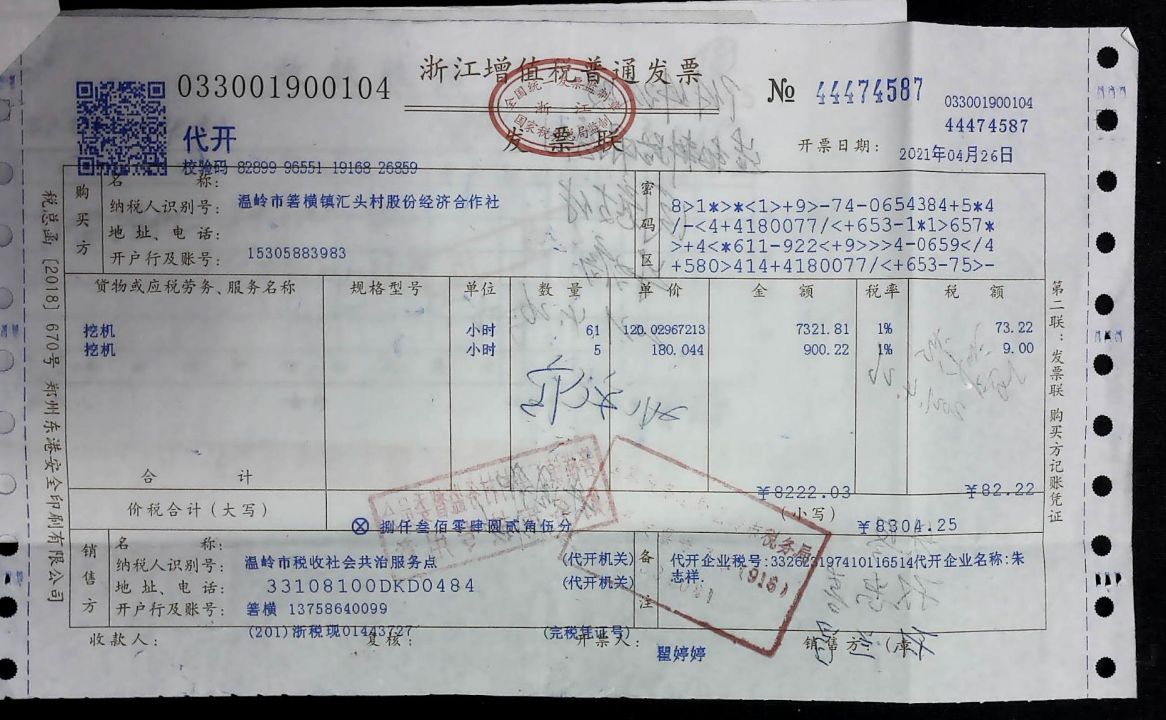 浙江增值税普通发票
033001900104
№ 44474587
033001900104
44474587
代开
发票联
全国统一发票监制章
浙江
国家税务总局监制
开票日期: 2021年04月26日
校验码 82899 96551 19168 26859
购买方
名 称:
温岭市箬横镇汇头村股份经济合作社
纳税人识别号:
地址、电话:
15305883983
开户行及账号:
密码区
8>1*>*<1>+9>-74-0654384+5*4
/-<4+4180077/<+653-1*1>657*
>+4<*611-922<+9>>>4-0659</4
+580>414+4180077/<+653-75>-
货物或应税劳务、服务名称 规格型号 单位 数量 单价 金额 税率 税额
挖机 小时 61 120.02967213 7321.81 1% 73.22
挖机 小时 5 180.044 900.22 1% 9.00
合计 ¥8222.03 ¥82.22
价税合计(大写) ⊗ 捌仟叁佰零肆圆贰角伍分 (小写) ¥8304.25
销售方
名 称:
温岭市税收社会共治服务点 (代开机关)
纳税人识别号:
33108100DKD0484 (代开机关)
地址、电话:
箬横 13758640099
开户行及账号:
(201)浙税现01443727 (完税凭证号)
备注
代开企业税号:332623197410116514代开企业名称:朱
志祥.
税务局
(916)
收款人: 复核: 开票人: 瞿婷婷 销售方:(章)
税总函〔2018〕670号 郑州东港安全印刷有限公司
第二联:发票联 购买方记账凭证